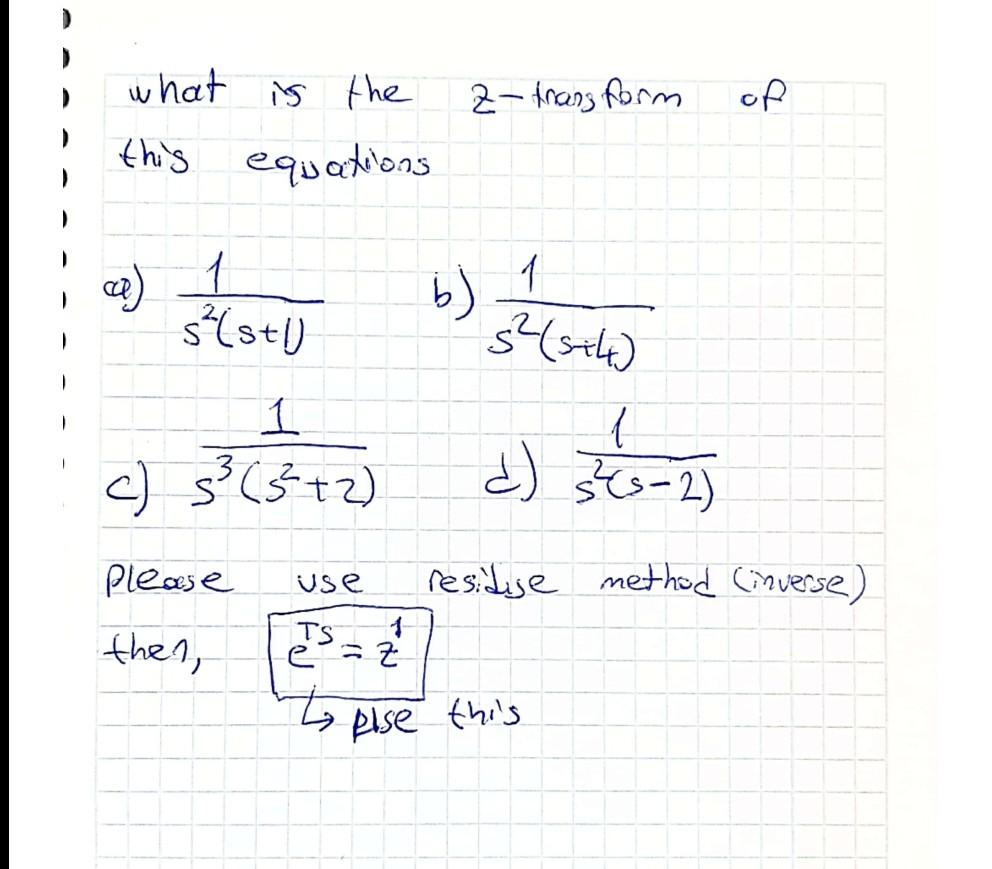 what is the z-transform of
this equations
a) 1/(s²(s+1)) b) 1/(s²(s+4))
c) 1/(s³(s²+2)) d) 1/(s²(s-2))
please use residue method (inverse)
then, e^TS = z^1
↳ plse this